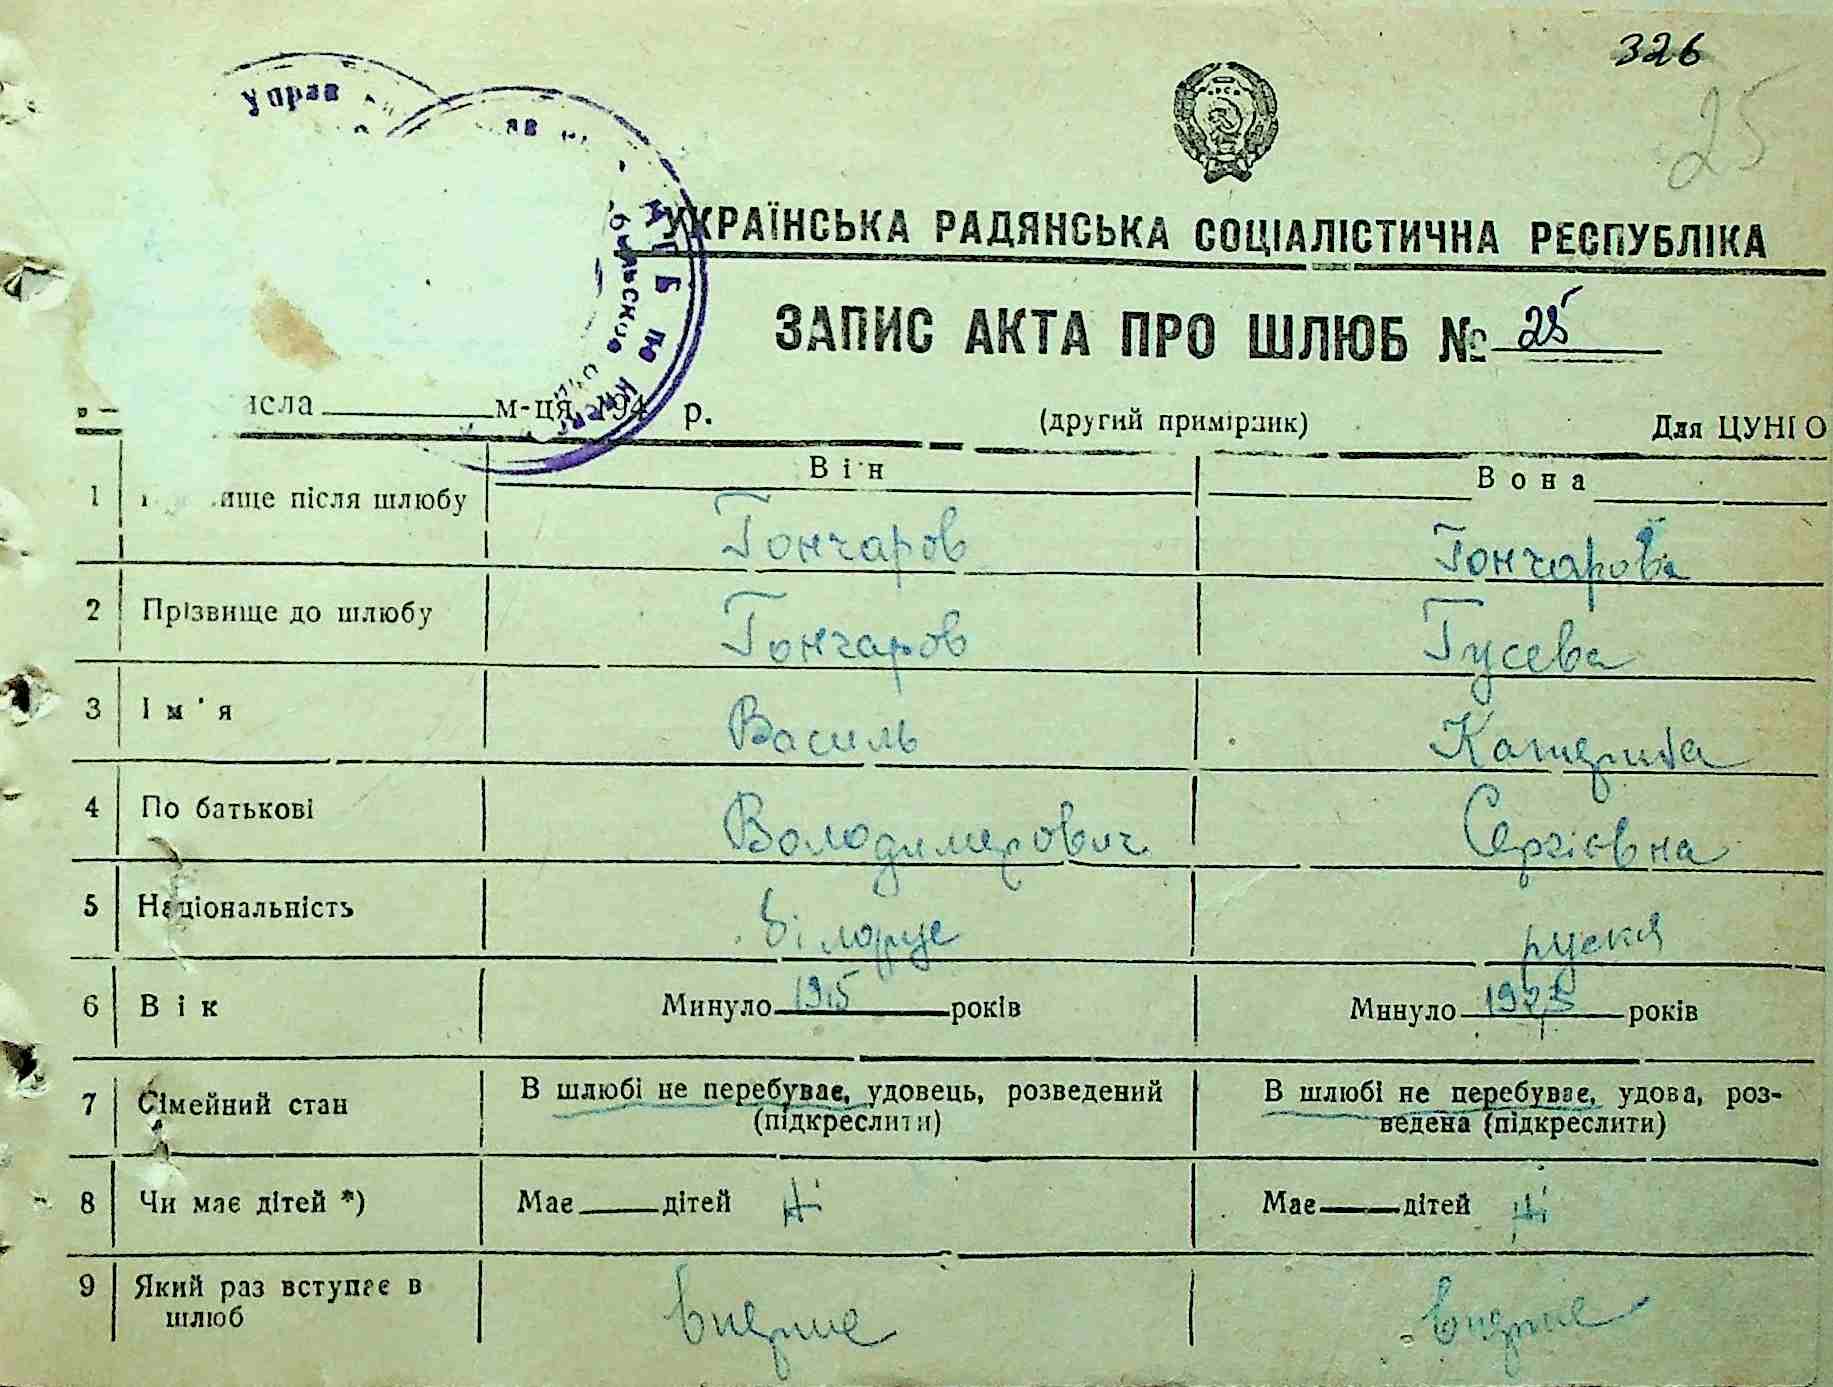 326
25
УКРАЇНСЬКА РАДЯНСЬКА СОЦІАЛІСТИЧНА РЕСПУБЛІКА
ЗАПИС АКТА ПРО ШЛЮБ № 25
м-ця 194 р. (другий примірник) Для ЦУНГО
Він Вона
1 після шлюбу Гончаров Гончарова
2 Прізвище до шлюбу Гончаров Гусева
3 Ім'я Василь Катерина
4 По батькові Володимерович Сергієвна
5 Національність білорус руская
6 Вік Минуло 1915 років Минуло 1923 років
7 Сімейний стан В шлюбі не перебуває, удовець, розведений В шлюбі не перебуває, удова, роз-
(підкреслити) ведена (підкреслити)
8 Чи має дітей *) Має дітей ні Має дітей ні
9 Який раз вступає в
шлюб вперше вперше